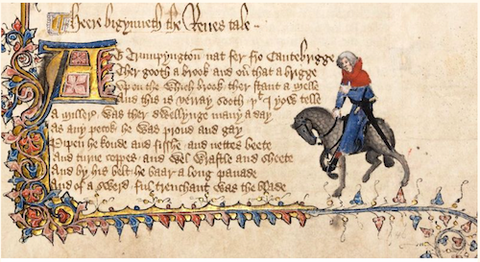 Heere bigynneth the Reues tale
At Trumpyngton nat fer fro Cantebrigge
Ther gooth a brook and oũ that a brigge
Upon the which brook ther stant a melle
And this is verray sooth þt I yow telle
A millere was ther dwellynge many a day
As any pecok he was proud and gay
Pipen he koude and fisshe and nettes beete
And turne coppes and wel wrastle and sheete
And by his belt he baar a long panade
And of a swerd ful trenchant was the blade